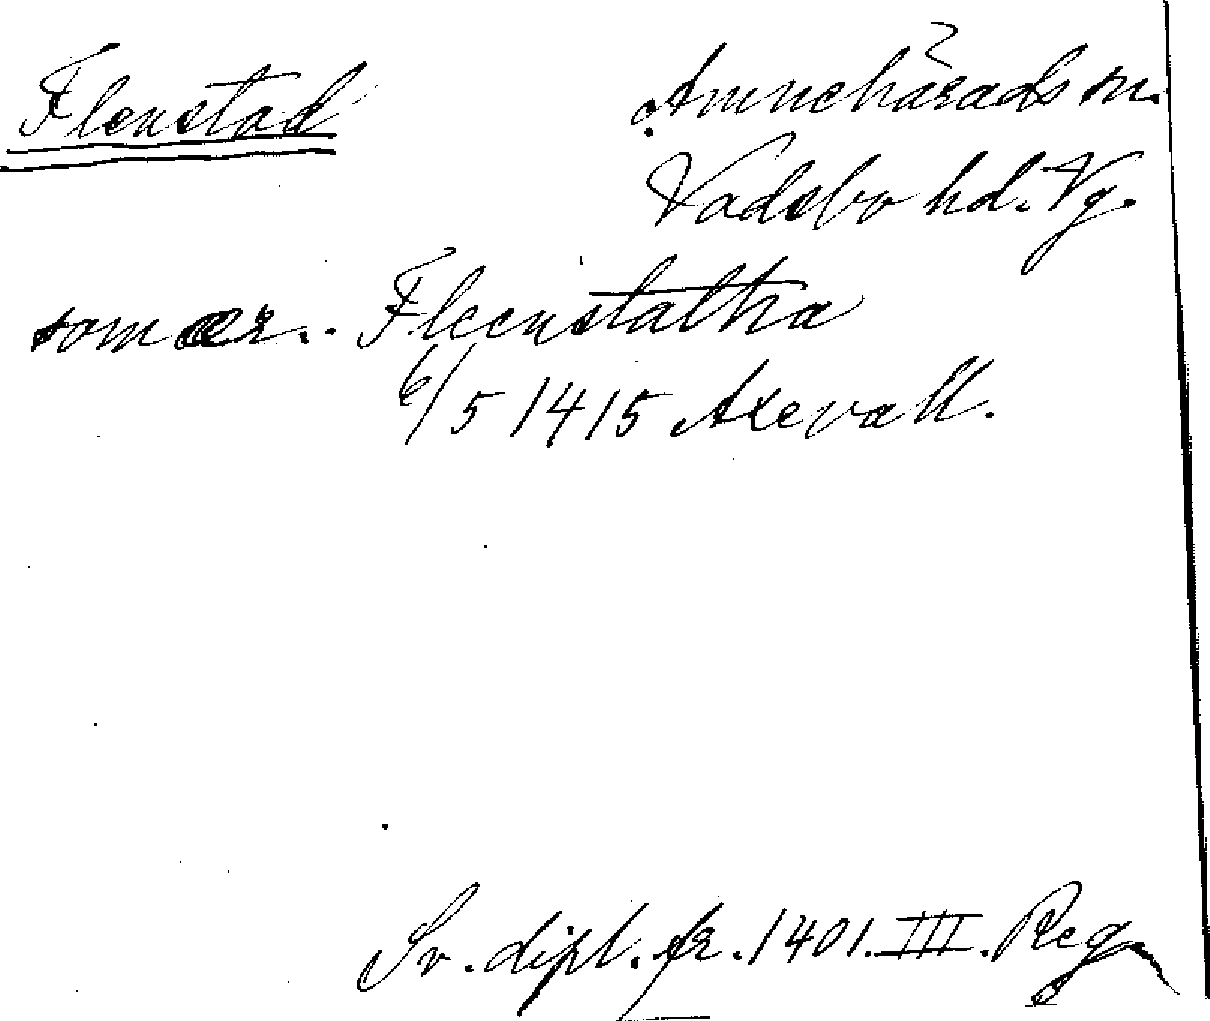 Flenstad
Amnehärads sn.
Vadsbo hd. Vg.
som ær.. Fleenstatha
6/5 1415 Axevall.
Sv. dipl. fr. 1401. III. Reg